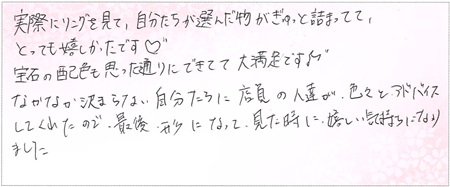 実際にリングを見て、自分たちが選んだ物がぎゅっと詰まってて、
とっても嬉しかったです♡
宝石の配色も思った通りにできてて大満足です♪
なかなか決まらない自分たちに店員の人達が、色々とアドバイス
してくれたので、最後、形になって、見た時に、嬉しい気持ちになり
ました